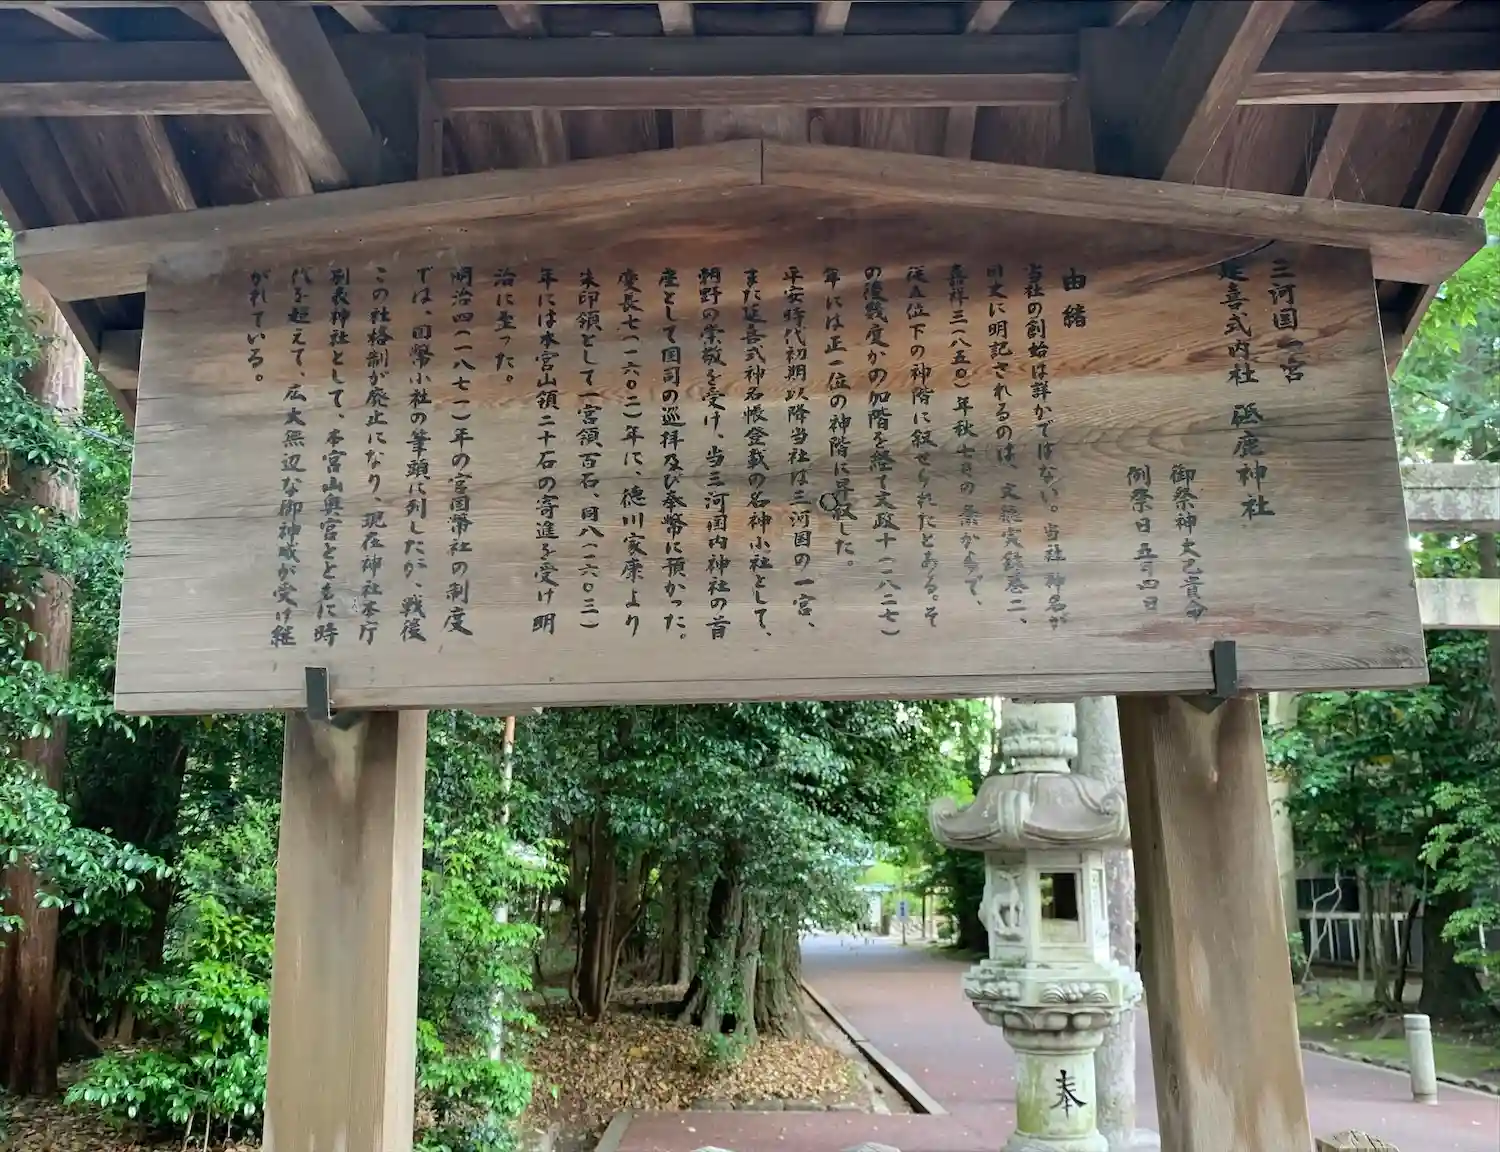 三河国一宮
延喜式内社 砥鹿神社
御祭神 大己貴命
例祭日 五月四日
由緒
当社の創始は詳かではない。当社神名が
国史に明記されるのは、文徳実録巻二、
嘉祥三(八五〇)年秋七月の条が今で、
従五位下の神階に叙せられたとある。そ
の後幾度かの加階を経て文政十(一八二七)
年には正一位の神階に昇叙した。
平安時代初期以降当社は三河国の一宮、
また延喜式神名帳登載の名神小社として、
朝野の崇敬を受け、当三河国内神社の首
座として国司の巡拝及び奉幣に預かった。
慶長七(一六〇二)年に、徳川家康より
朱印領として一宮領百石、同八(一六〇三)
年には本宮山領二十石の寄進を受け明
治に至った。
明治四(一八七一)年の官国幣社の制度
では、国幣小社の筆頭に列したが、戦後
この社格制が廃止になり、現在神社本庁
別表神社として、本宮山奥宮とともに時
代を超えて、広大無辺な御神威が受け継
がれている。
奉